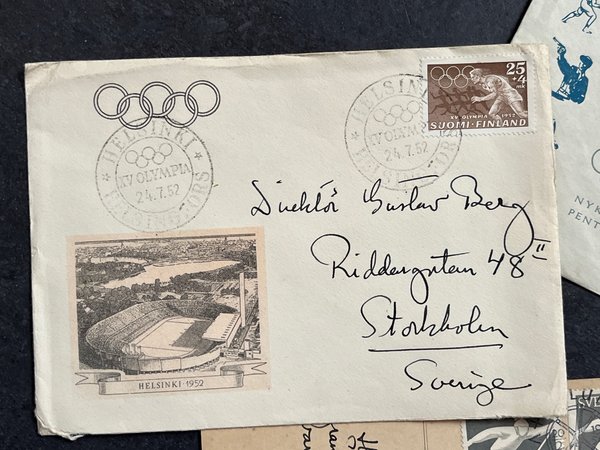 HELSINKI
XV OLYMPIA
24.7.52
HELSINGFORS
HELSINKI
XV OLYMPIA
24.7.52
HELSINGFORS
25
+4
mk
XV OLYMPIA 1952
SUOMI-FINLAND
Direktör Gustav Berg
Riddargatan 48 II
Stockholm
Sverige
HELSINKI 1952
NYK
PENT
SVE